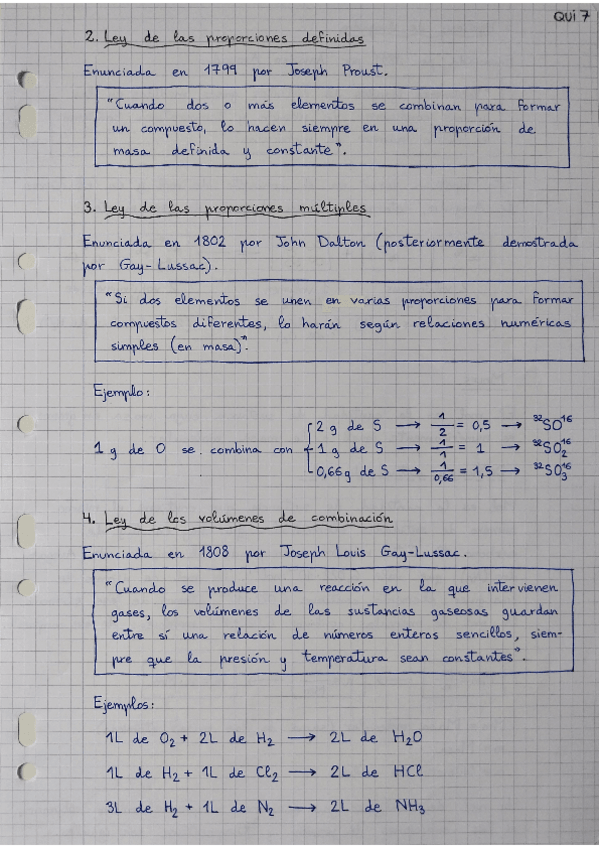 QUI 7
2. Ley de las proporciones definidas
Enunciada en 1799 por Joseph Proust.
"Cuando dos o más elementos se combinan para formar
un compuesto, lo hacen siempre en una proporción de
masa definida y constante".
3. Ley de las proporciones múltiples
Enunciada en 1802 por John Dalton (posteriormente demostrada
por Gay-Lussac).
"Si dos elementos se unen en varias proporciones para formar
compuestos diferentes, lo harán según relaciones numéricas
simples (en masa)".
Ejemplo:
2 g de S → 1/2 = 0,5 → ³²SO¹⁶
1 g de O se combina con { 1 g de S → 1/1 = 1 → ³²SO₂¹⁶
0,66 g de S → 1/0,66 = 1,5 → ³²SO₃¹⁶
4. Ley de los volúmenes de combinación
Enunciada en 1808 por Joseph Louis Gay-Lussac.
"Cuando se produce una reacción en la que intervienen
gases, los volúmenes de las sustancias gaseosas guardan
entre sí una relación de números enteros sencillos, siem-
pre que la presión y temperatura sean constantes".
Ejemplos:
1L de O₂ + 2L de H₂ → 2L de H₂O
1L de H₂ + 1L de Cl₂ → 2L de HCl
3L de H₂ + 1L de N₂ → 2L de NH₃